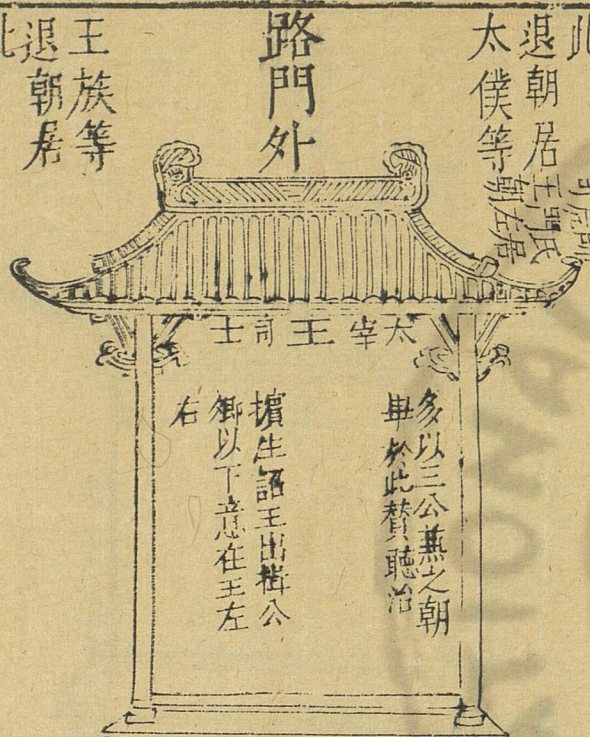 此
退朝居
太僕等
路門外
王族等
退朝居
此
太宰 王 司士
多以三公燕之朝
畢於此贊聽治
擯生詔王出揖公
卿以下意在王左
右